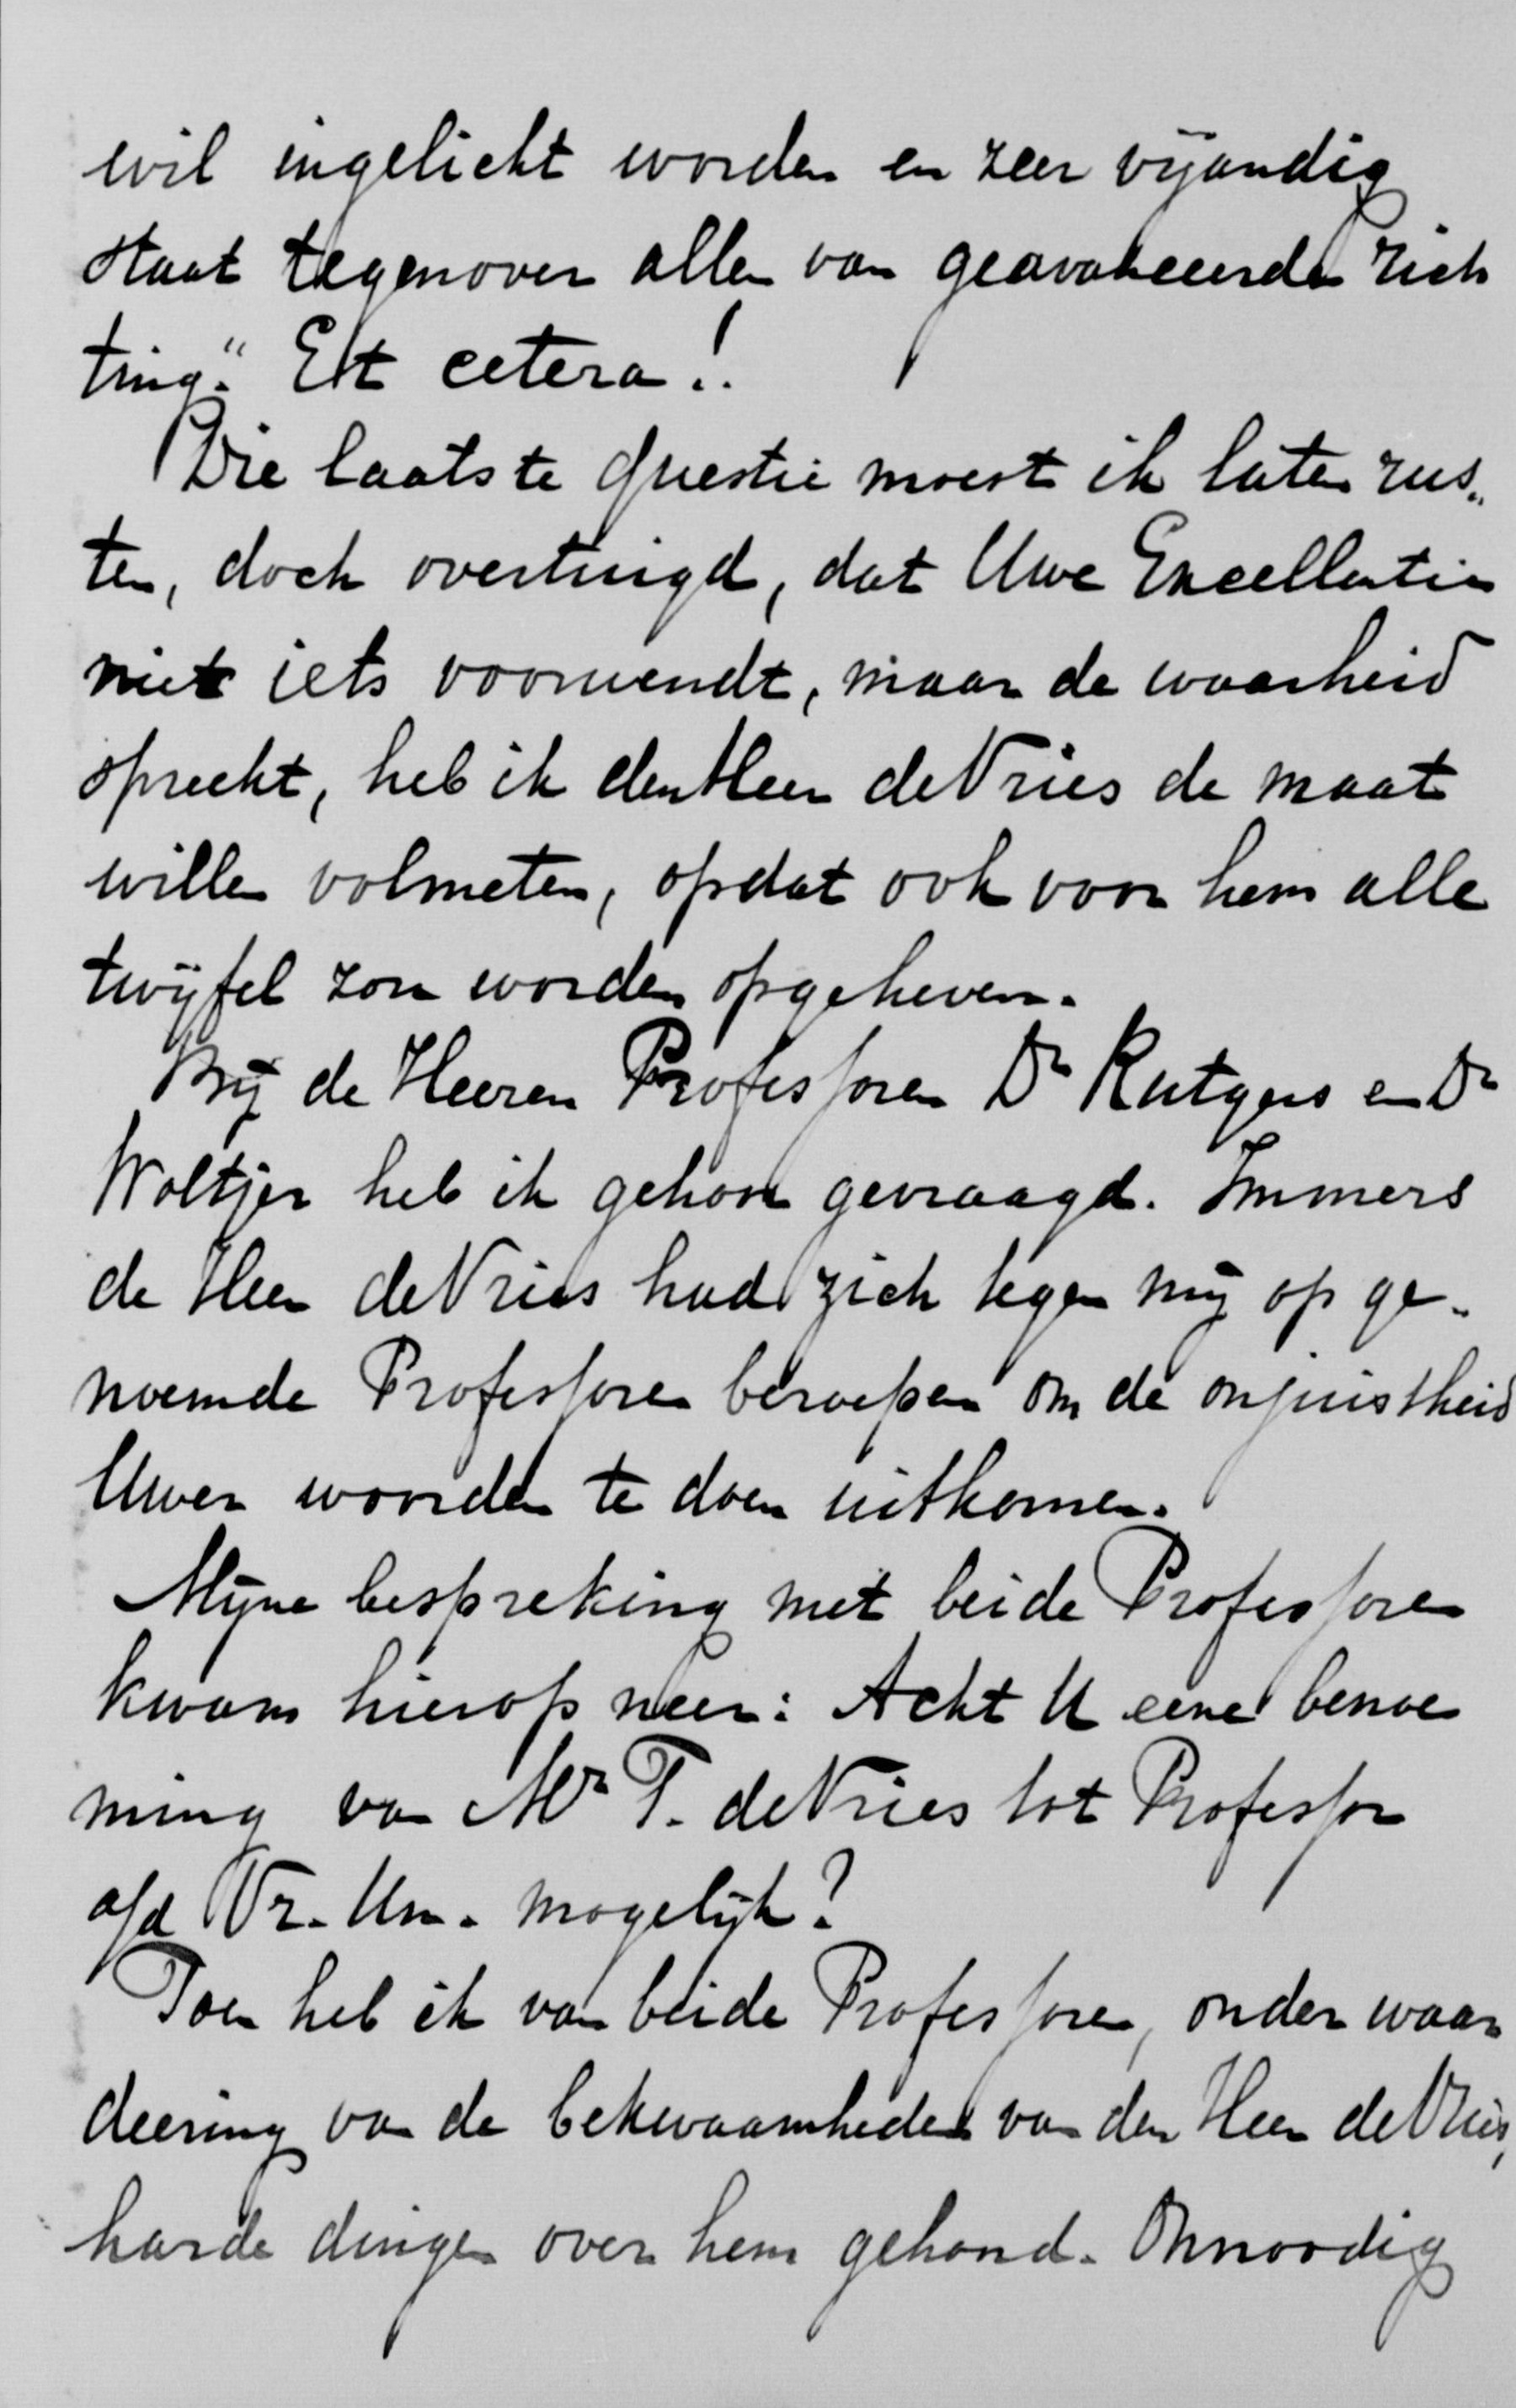 wil ingelicht worden en zeer vijandig
staat tegenover allen van geavanceerde rich
ting." Et cetera!.
Die laatste questie moest ik laten rus„
ten, doch overtuigd, dat Uwe Excellentie
niet iets voorwendt, maar de waarheid
spreekt, heb ik den Heer de Vries de maat
willen volmeten, opdat ook voor hem alle
twijfel zou worden opgeheven.
Bij de Heeren Professoren Dr Rutgers en Dr
Woltjer heb ik gehoor gevraagd. Immers
de Heer de Vries had zich tegen mij op ge-
noemde Professoren beroepen om de onjuistheid
Uwer woorden te doen uitkomen.
Mijne bespreking met beide Professoren
kwam hierop neer: Acht U eene benoe
ming van Mr T. de Vries tot Professor
a/d Vr. Un. mogelijk?
Toen heb ik van beide Professoren, onder waar
deering van de bekwaamheden van den Heer de Vries,
harde dingen over hem gehoord. Onnoodig